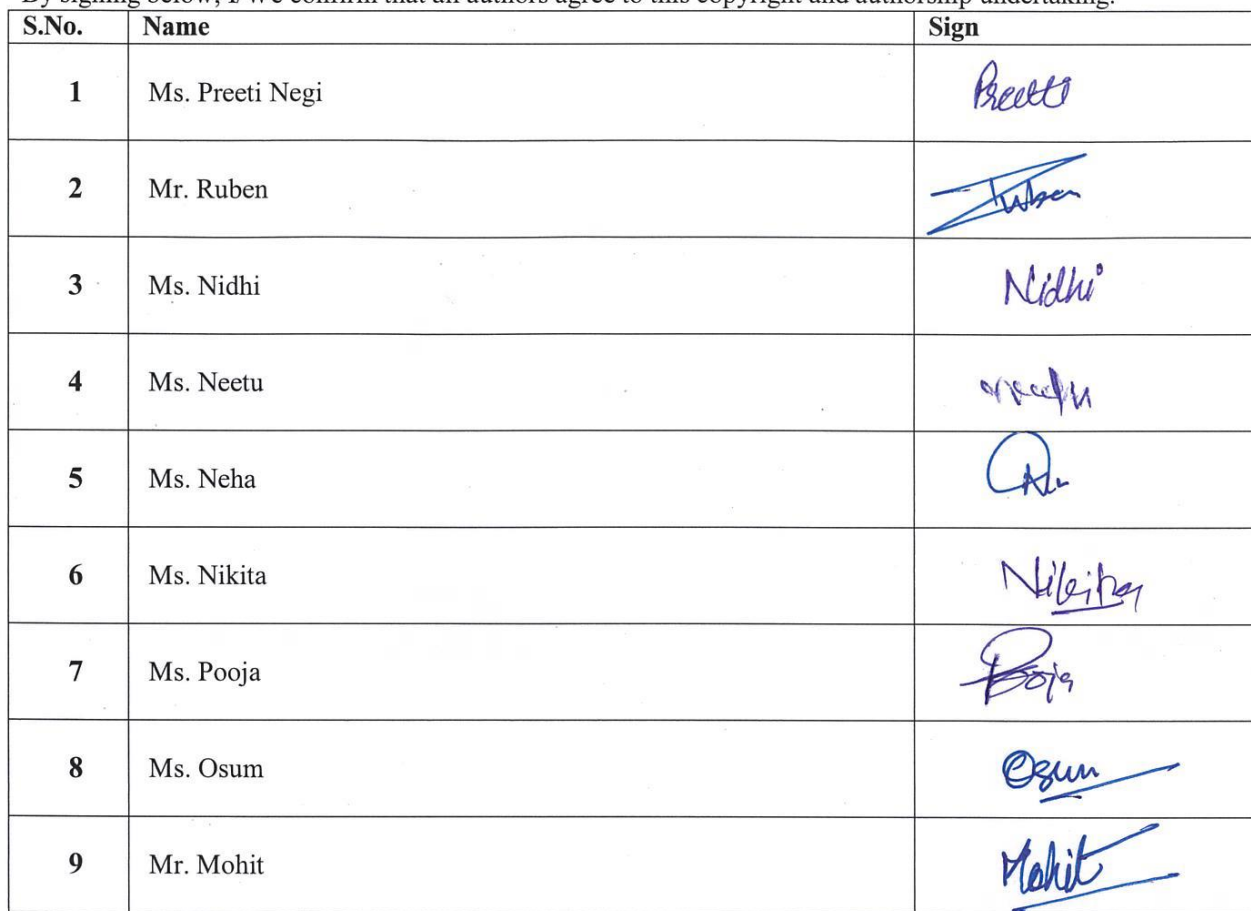 By signing below, I/We confirm that all authors agree to this copyright and authorship undertaking.
S.No. Name Sign
1 Ms. Preeti Negi Preeti
2 Mr. Ruben Ruben
3 Ms. Nidhi Nidhi
4 Ms. Neetu
5 Ms. Neha
6 Ms. Nikita Nikita
7 Ms. Pooja Pooja
8 Ms. Osum Osum
9 Mr. Mohit Mohit